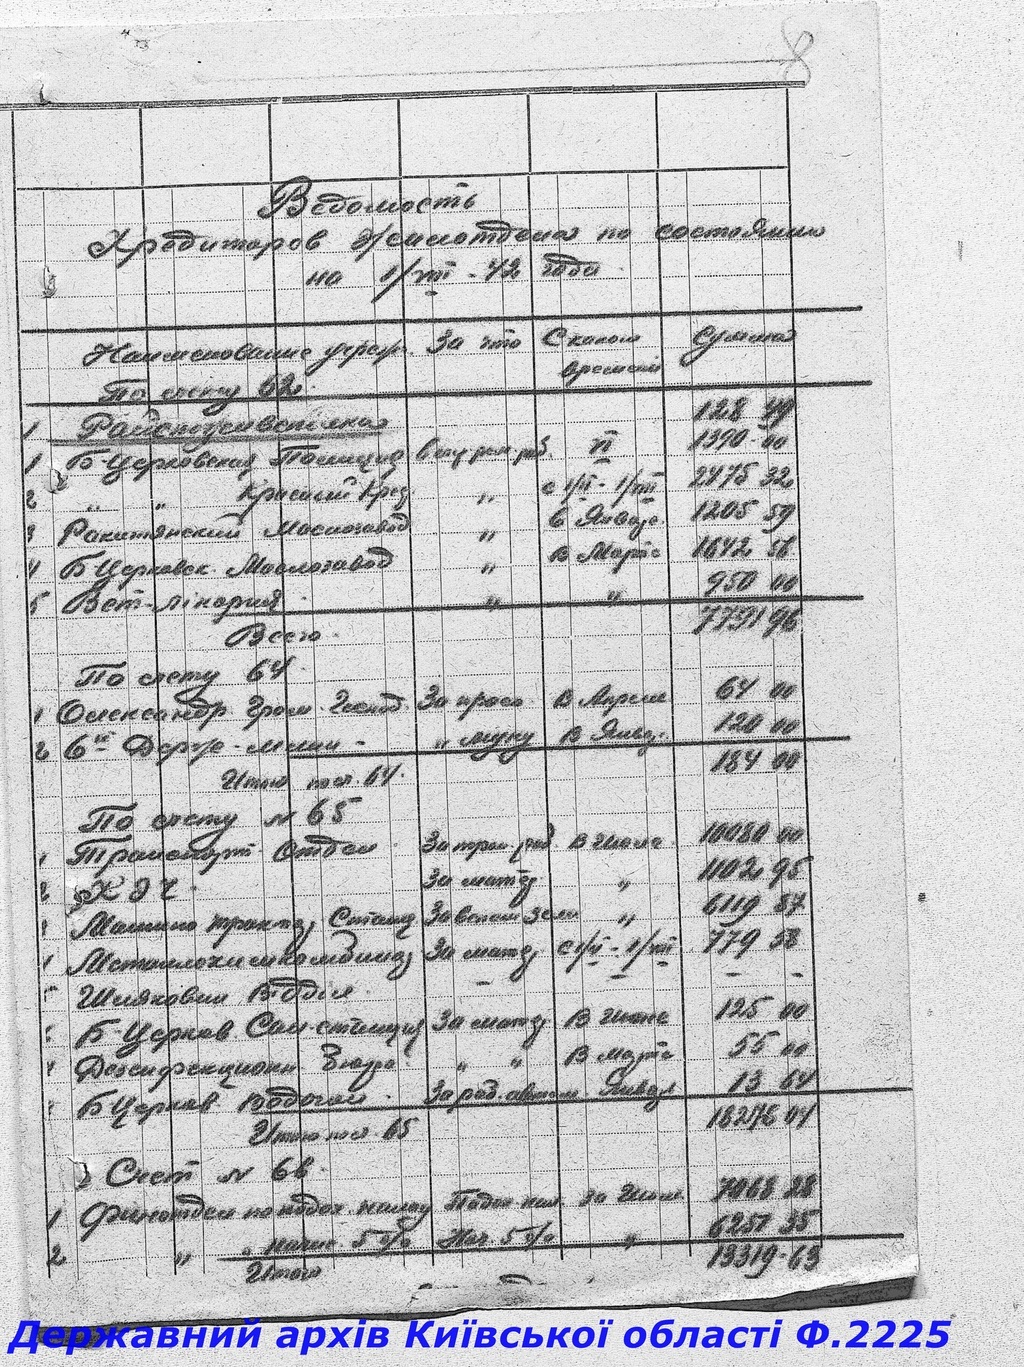 8
Ведомость
Кредиторов Жилотдела по состоянию
на 1/VII - 42 года
Наименование учреж. За что С какого Сумма
времени
По счету 62.
1 128 49
1 Б-Церковская Полиция 1390-00
2 " " Красный Крест " с 1/II - 1/VII 2475 32
3 Ракитянский Маслозавод " В Январе 1205 59
4 Б Церковск. Маслозавод " В Марте 1642 56
5 Вет-лікарня " " 950 00
Всего 7791 96
По счету 64
1 Олександр. Гром. Господ. За просо В Апреле 64 00
2 " муку В Январ. 120 00
Итого по сч. 64. 184 00
По счету № 65
1 Транспорт Отдел За тран. раб. В Июне 10080 00
2 ХЭЧ. За матер " 1102 95
3 Машино тракт. Станц За вспаш земли " 6119 87
4 Металлохимкомбинат За матер с 1/II - 1/VII 779 58
5 Шляховий Відділ. - - -
Б-Церков Сан-станция За матер В Июне 125 00
Дезинфекцион Бюро " " В марте 55 00
Б Церков Водоган За раб. Январ 13 64
Итого по сч. 65 18276 04
Счет № 68
1 Финотдел по подох. налогу Подох нал. за Июнь 7068 28
2 " " начис. 5% Нач. 5% " 6251 35
Итого 13319-63
Державний архів Київської області Ф.2225